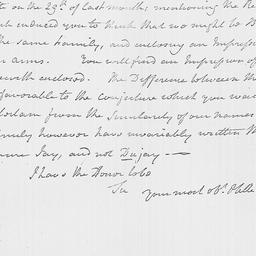 on the 29th. of last month; mentioning the Re
induced you to think that we might be B
the same Family, and enclosing an Impress
arms. You will find an Impression of
enclosed. The Difference between th
favorable to the conjecture which you
from the Similarity of our names
however have invariably written th
Jay, and not Dujay —
I have the Honor to be
Sir your most ob.